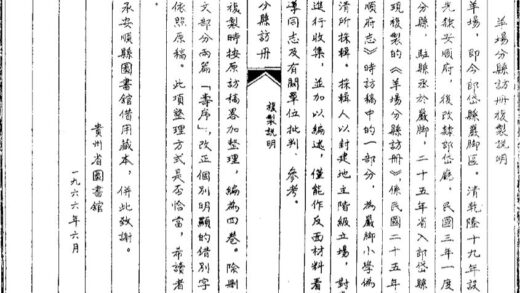 羊場分縣訪冊複製說明
羊場，即今郎岱縣巖脚區。清乾隆十九年設
光復安順府，後改隸郎岱廳，民國三年一度
分縣，駐縣丞於巖脚，二十五年省入郎岱縣
現複製的《羊場分縣訪冊》係民國二十五年
順府志》時訪稿中的一部分，為巖脚小學伍
清所採輯。採輯人以封建地主階級立場，對
進行收集，並加以編述，僅能作反面材料看
導同志及有關單位批判、參考。
分縣訪冊 複製說明
複製時按原訪稿畧加整理，編為四卷。除刪
文部分兩篇「壽序」，改正個別明顯的借別字
依照原稿。此項整理方式是否恰當，希讀者
承安順縣圖書館借用藏本，併此致謝。
貴州省圖書館
一九六六年六月